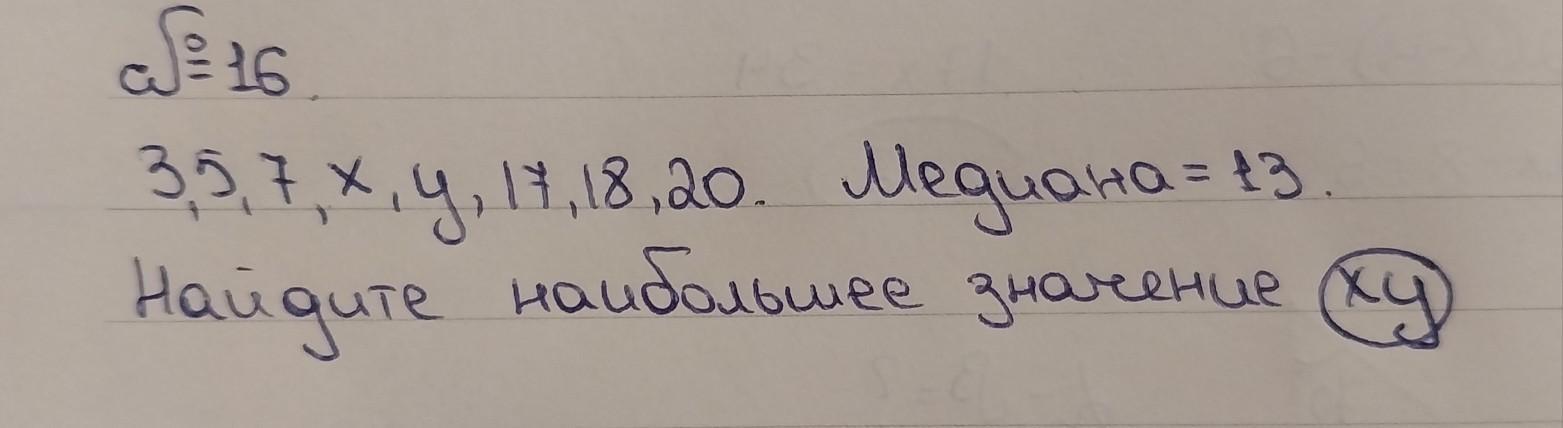 №16
3,5,7,x,y,17,18,20. Медиана=13.
Найдите наибольшее значение xy